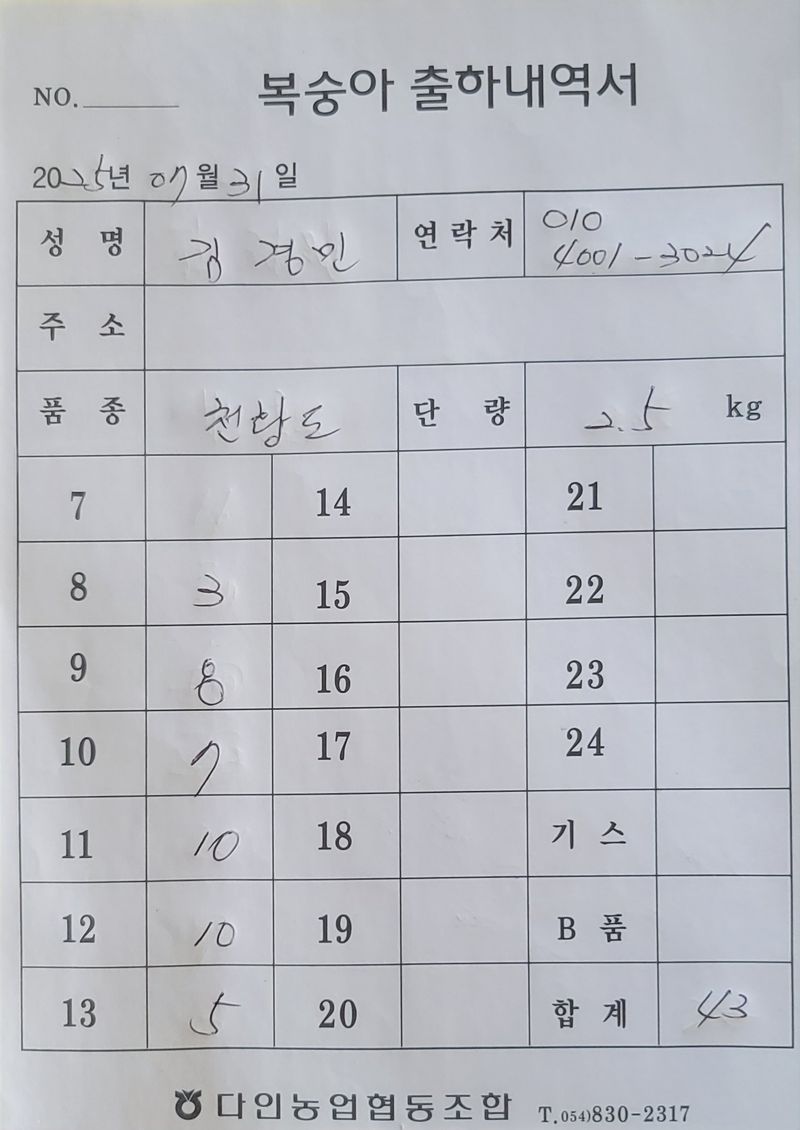 NO.
복숭아 출하내역서
2025년 07월 31일
성 명 김경민 연락처 010 4001-3024
주 소
품 종 천황도 단 량 2.5 kg
7 14 21
8 3 15 22
9 8 16 23
10 7 17 24
11 10 18 기 스
12 10 19 B 품
13 5 20 합 계 43
다인농업협동조합 T.054)830-2317